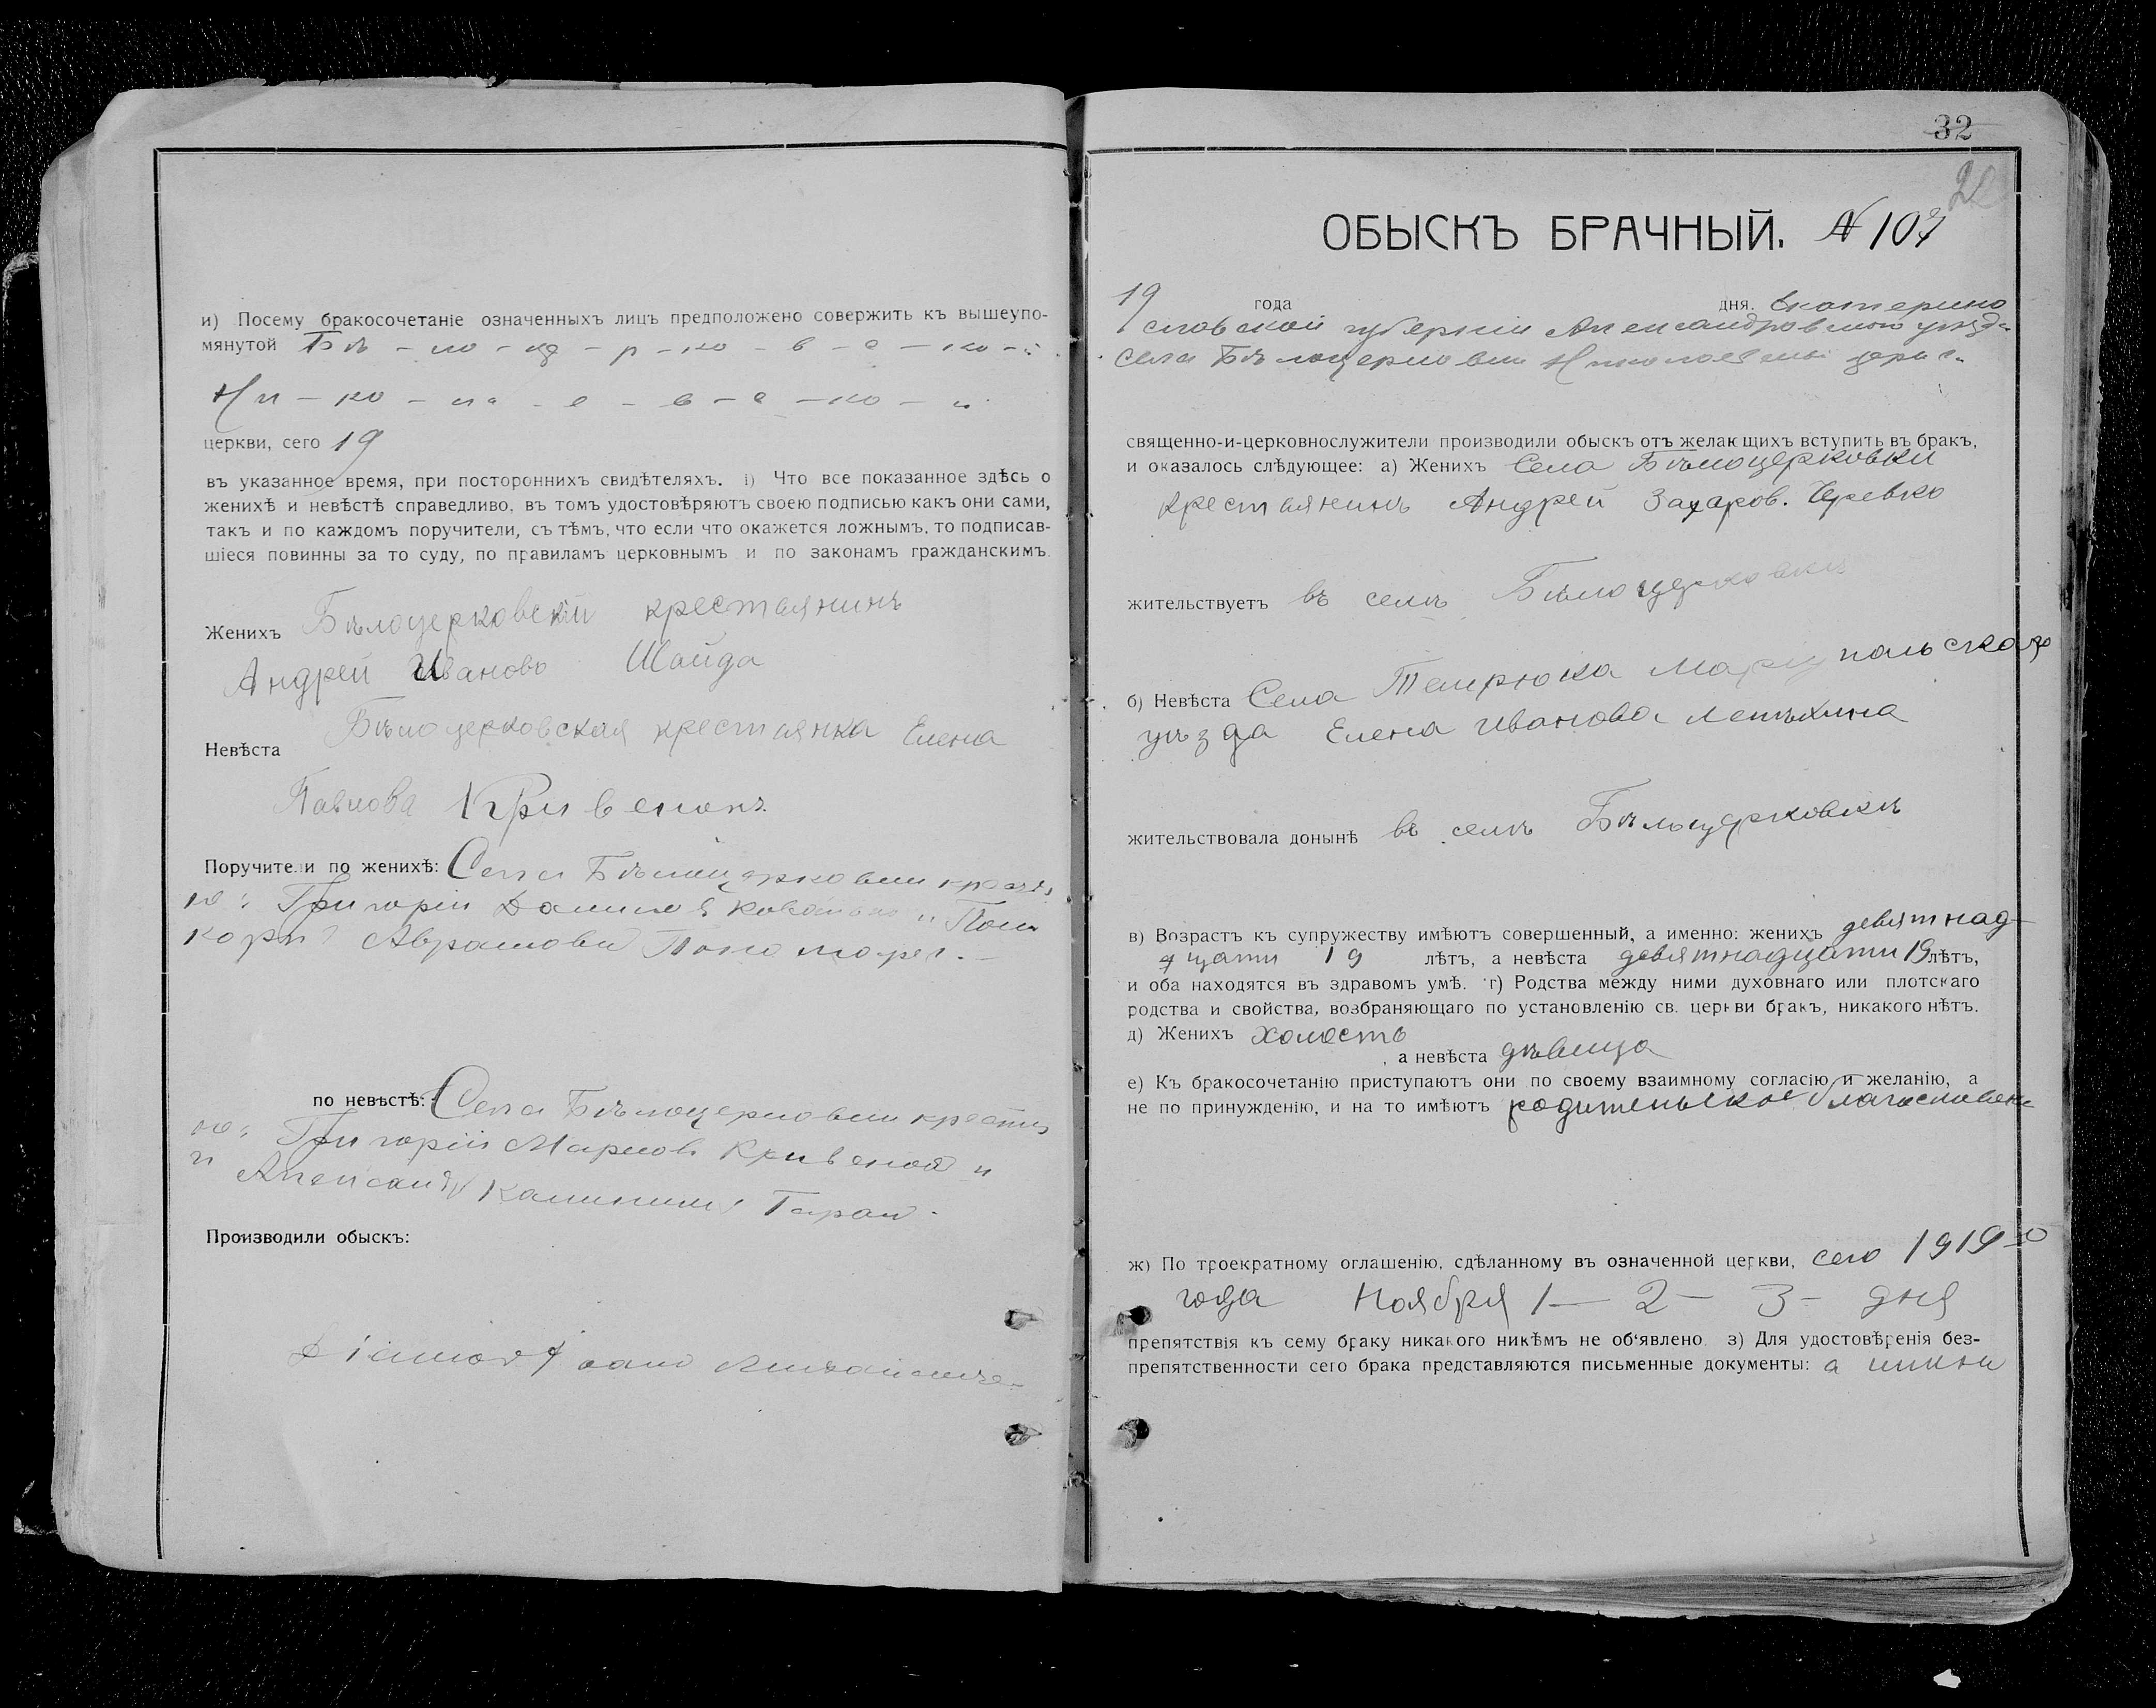 и) Посему бракосочетаніе означенныхъ лицъ предположено совержить къ вышеупо-
мянутой Бѣ - ло - це - р - ко - в - с - ко - й
Ни - ко - ла - е - в - с - ко - й
церкви, сего 19
въ указанное время, при постороннихъ свидѣтеляхъ. і) Что все показанное здѣсь о
женихѣ и невѣстѣ справедливо, въ томъ удостовѣряютъ своею подписью какъ они сами,
такъ и по каждомъ поручители, съ тѣмъ, что если что окажется ложнымъ, то подписав-
шіеся повинны за то суду, по правиламъ церковнымъ и по законамъ гражданскимъ.
Женихъ Бѣлоцерковскій крестьянинъ
Андрей Ивановъ Шайда
Невѣста Бѣлоцерковская крестьянка Елена
Павлова Кривенокъ
Поручители по женихѣ: Села Бѣлоцерковки
Григорій Данилов
Аврамовъ Пономарев
по невѣстѣ: Села Бѣлоцерковки
Григорій Марков Кривеной и
Александр Калинин Таран
Производили обыскъ:
32
ОБЫСКЪ БРАЧНЫЙ. № 107
19 года дня. Екатерино
славской губерніи Александровского уезда
села Бѣлоцерковки Николаевской
священно-и-церковнослужители производили обыскъ отъ желающихъ вступить въ бракъ,
и оказалось слѣдующее: а) Женихъ Села Бѣлоцерковки
крестьянинъ Андрей Захаров. Черевко
жительствуетъ въ селѣ Бѣлоцерковки
б) Невѣста Села Темрюка Мариупольскаго
уѣзда Елена Иванова Лепѣхина
жительствовала донынѣ въ селѣ Бѣлоцерковкѣ
в) Возрастъ къ супружеству имѣютъ совершенный, а именно: женихъ девятнад-
цати 19 лѣтъ, а невѣста девятнадцати 19 лѣтъ,
и оба находятся въ здравомъ умѣ. г) Родства между ними духовнаго или плотскаго
родства и свойства, возбраняющаго по установленію св. церкви бракъ, никакого нѣтъ.
д) Женихъ холостъ
, а невѣста дѣвица
е) Къ бракосочетанію приступаютъ они по своему взаимному согласію и желанію, а
не по принужденію, и на то имѣютъ родительское
ж) По троекратному оглашенію, сдѣланному въ означенной церкви, сего 1919-го
года Ноября 1 — 2 — 3 - дня
препятствія къ сему браку никакого никѣмъ не об'явлено. з) Для удостовѣренія без-
препятственности сего брака представляются письменные документы: а